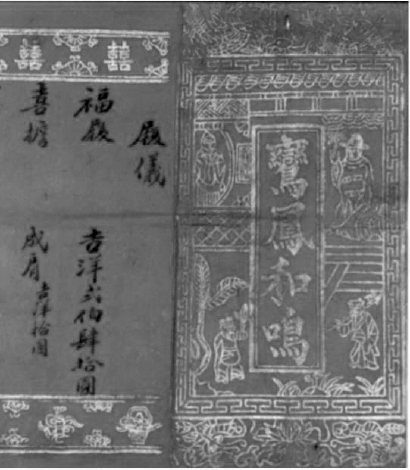 鸞鳳和鳴
殷儀
福殷 吉洋六佰肆拾圓
喜捨 成肩 吉洋拾圓
囍 囍